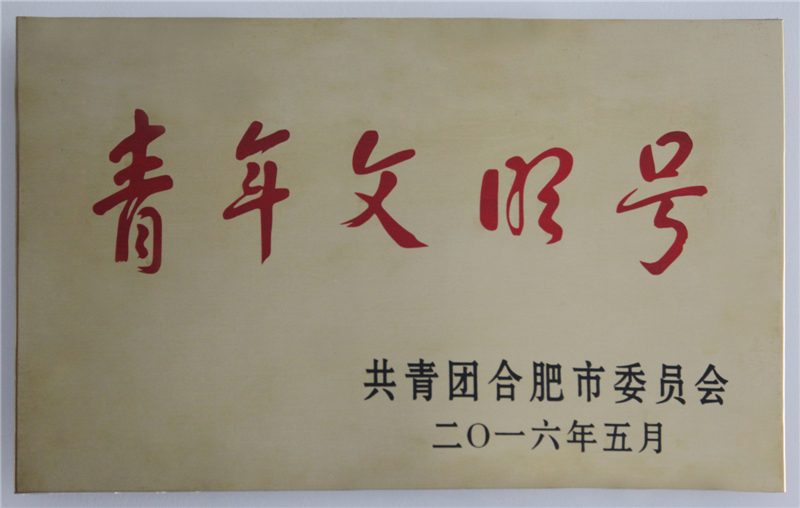 青年文明号
共青团合肥市委员会
二〇一六年五月